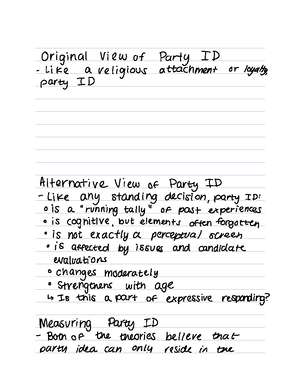 Original View of Party ID
- Like a religious attachment or loyalty
party ID
Alternative View of Party ID
- Like any standing decision, party ID:
• is a "running tally" of past experiences
• is cognitive, but elements often forgotten
• is not exactly a perceptual screen
• is affected by issues and candidate
evaluations
• changes moderately
• Strengthens with age
↳ Is this a part of expressive responding?
Measuring Party ID
- Both of the theories believe that
party idea can only reside in the